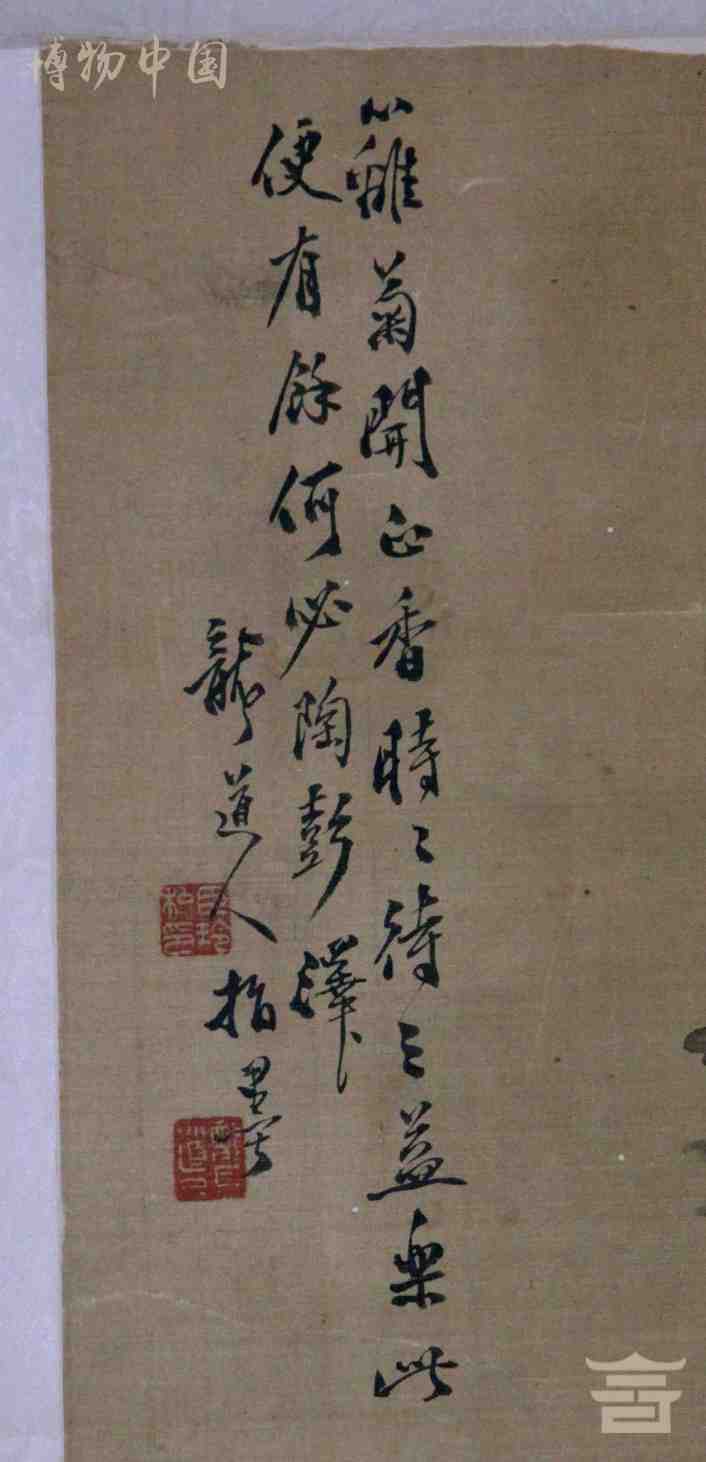 博物中国
籬菊開正香時〻待三益樂此
便有餘何必陶彭澤
道人指墨